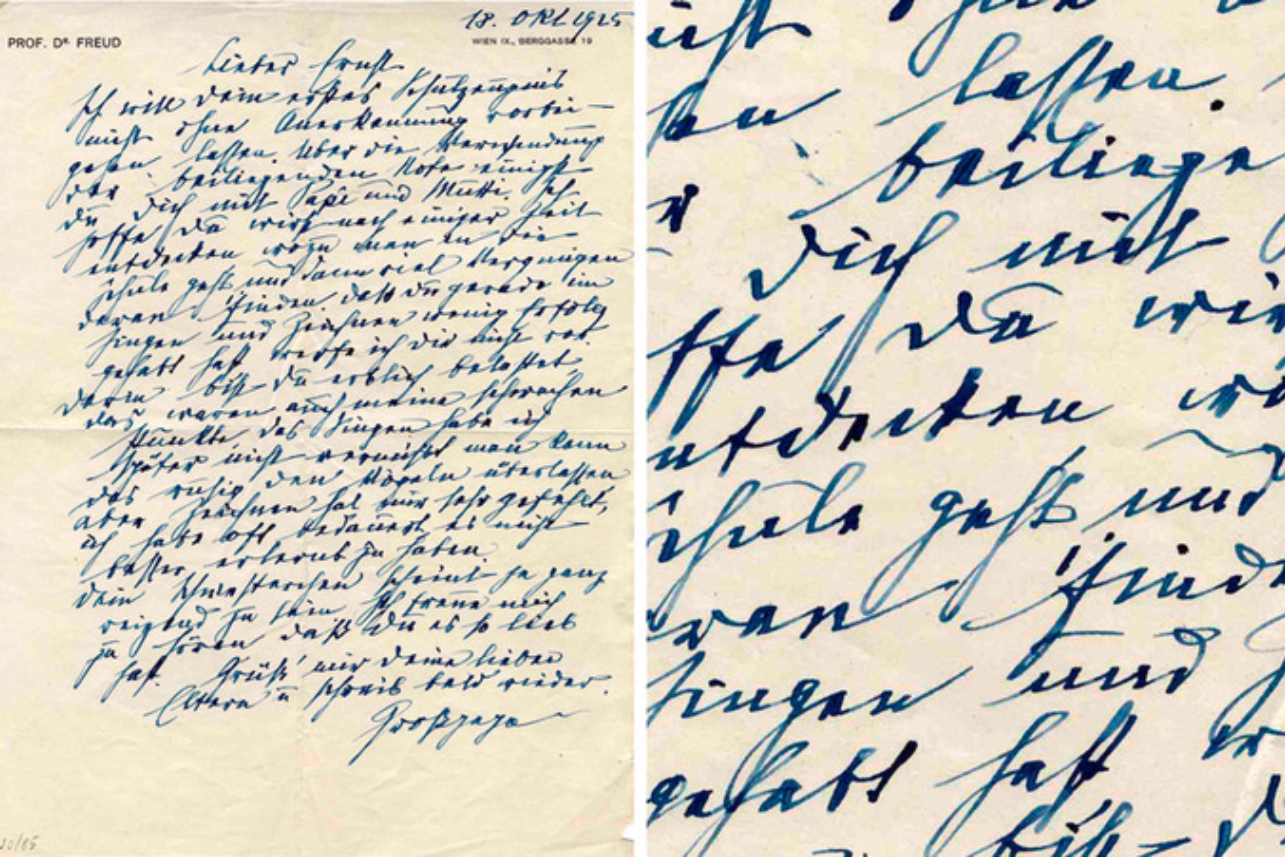 18. Okt 1925
PROF. DR. FREUD
WIEN IX., BERGGASSE 19
Lieber Ernst
Ich will Dein erstes Schulzeugnis
nicht ohne Anerkennung vorbei-
gehen lassen. Über die Verwendung
der beiliegenden Note einigst
du Dich mit Papi und Mutti. Ich
hoffe Du wirst nach einiger Zeit
entdecken wozu man in die
Schule geht und dann viel Vergnügen
daran finden, daß du gerade im
Singen und Zeichnen wenig Erfolg
gehabt hast werfe ich dir nicht vor.
Darin bist Du erblich belastet,
das waren auch meine schwachen
Punkte, das Singen habe ich
später nicht vermißt man kann
das ruhig den Vögeln überlassen
aber Zeichnen hat mir sehr gefehlt,
ich habe oft bedauert es nicht
besser erlernt zu haben.
Dein Schwesterchen scheint ja ganz
reizend zu sein Ich freue mich
zu hören daß Du es so lieb
hast. Grüß' mir deine lieben
Eltern u schreib bald wieder.
Großpapa
20/85
lassen.
beiliege
Dich mit
ffe Du wir
ntdecken
chule geht und
ran find
Singen und
gehabt hast
bist D